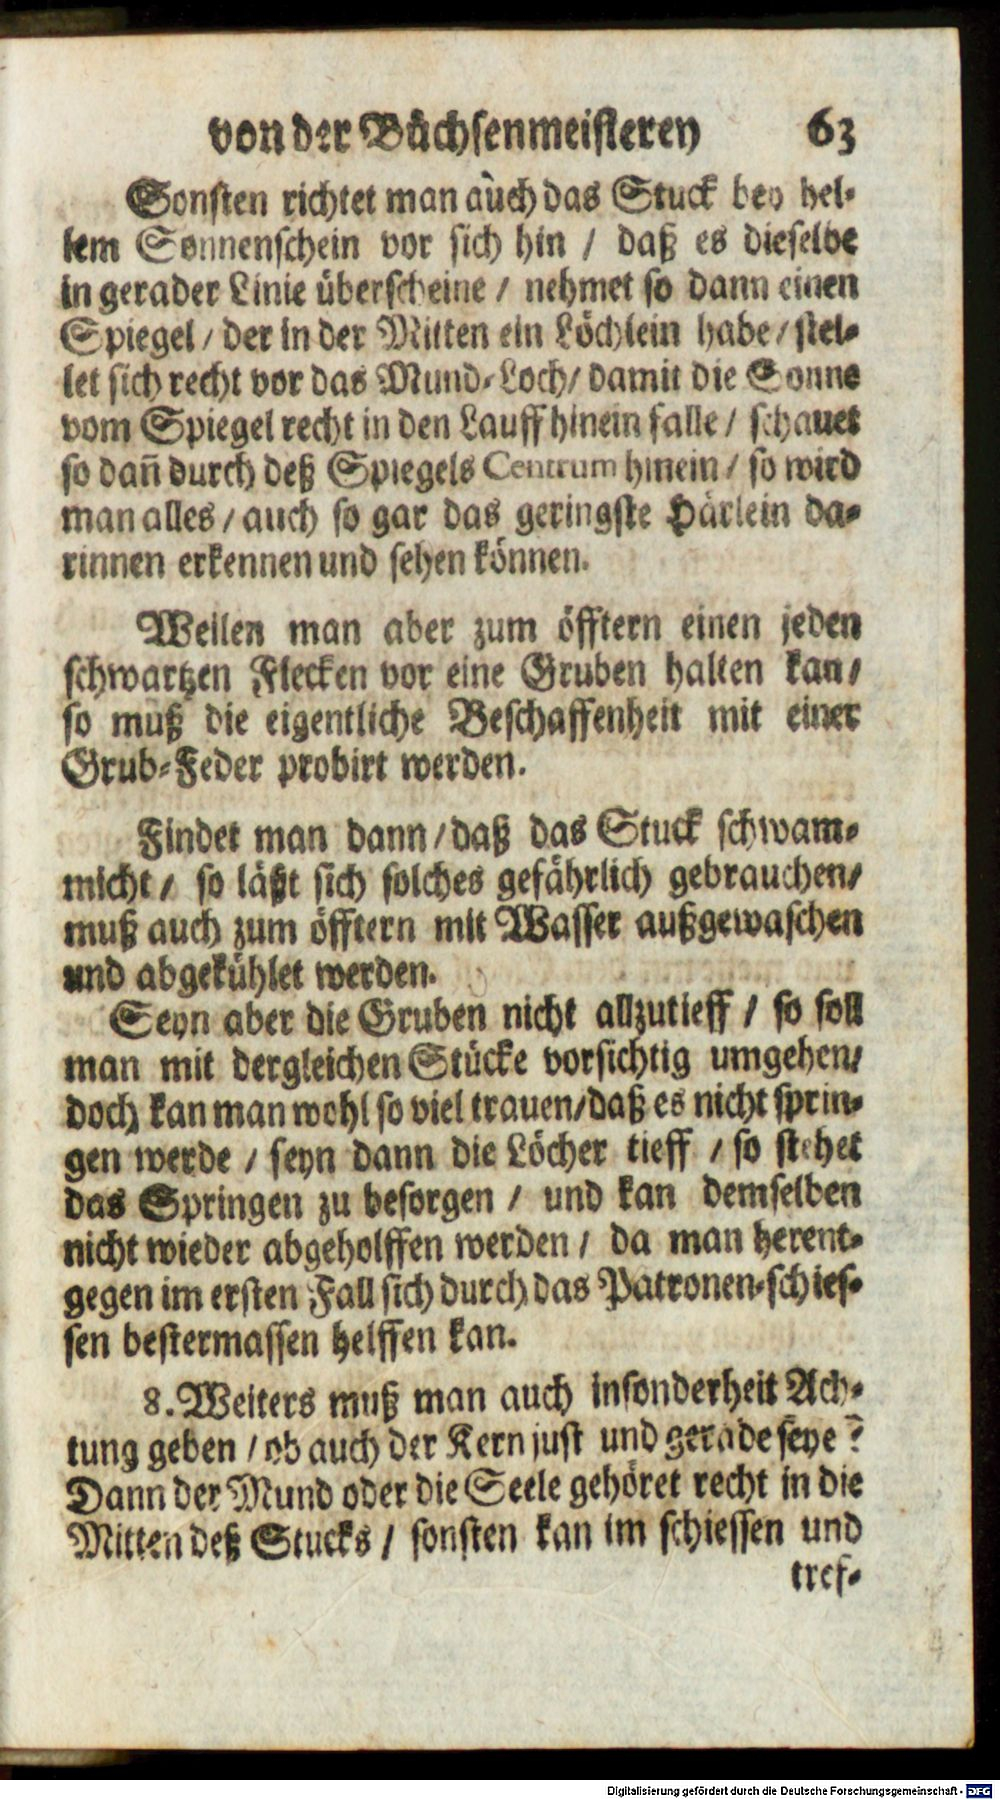 von der Büchsenmeisterey 63
Sonsten richtet man auch das Stuck bey hel-
lem Sonnenschein vor sich hin / daß es dieselbe
in gerader Linie überscheine / nehmet so dann einen
Spiegel / der in der Mitten ein Löchlein habe / stel-
let sich recht vor das Mund-Loch / damit die Sonne
vom Spiegel recht in den Lauff hinein falle / schauet
so dañ durch deß Spiegels Centrum hinein / so wird
man alles / auch so gar das geringste Härlein da-
rinnen erkennen und sehen können.
Weilen man aber zum öfftern einen jeden
schwartzen Flecken vor eine Gruben halten kan /
so muß die eigentliche Beschaffenheit mit einer
Grub-Feder probirt werden.
Findet man dann / daß das Stuck schwam-
micht / so läßt sich solches gefährlich gebrauchen /
muß auch zum öfftern mit Wasser außgewaschen
und abgekühlet werden.
Seyn aber die Gruben nicht allzutieff / so soll
man mit dergleichen Stücke vorsichtig umgehen /
doch kan man wohl so viel trauen / daß es nicht sprin-
gen werde / seyn dann die Löcher tieff / so stehet
das Springen zu besorgen / und kan demselben
nicht wieder abgeholffen werden / da man herent-
gegen im ersten Fall sich durch das Patronen-schies-
sen bestermassen helffen kan.
8. Weiters muß man auch insonderheit Ach-
tung geben / ob auch der Kern just und gerade seye ?
Dann der Mund oder die Seele gehöret recht in die
Mitten deß Stucks / sonsten kan im schiessen und
tref-
Digitalisierung gefördert durch die Deutsche Forschungsgemeinschaft - DFG